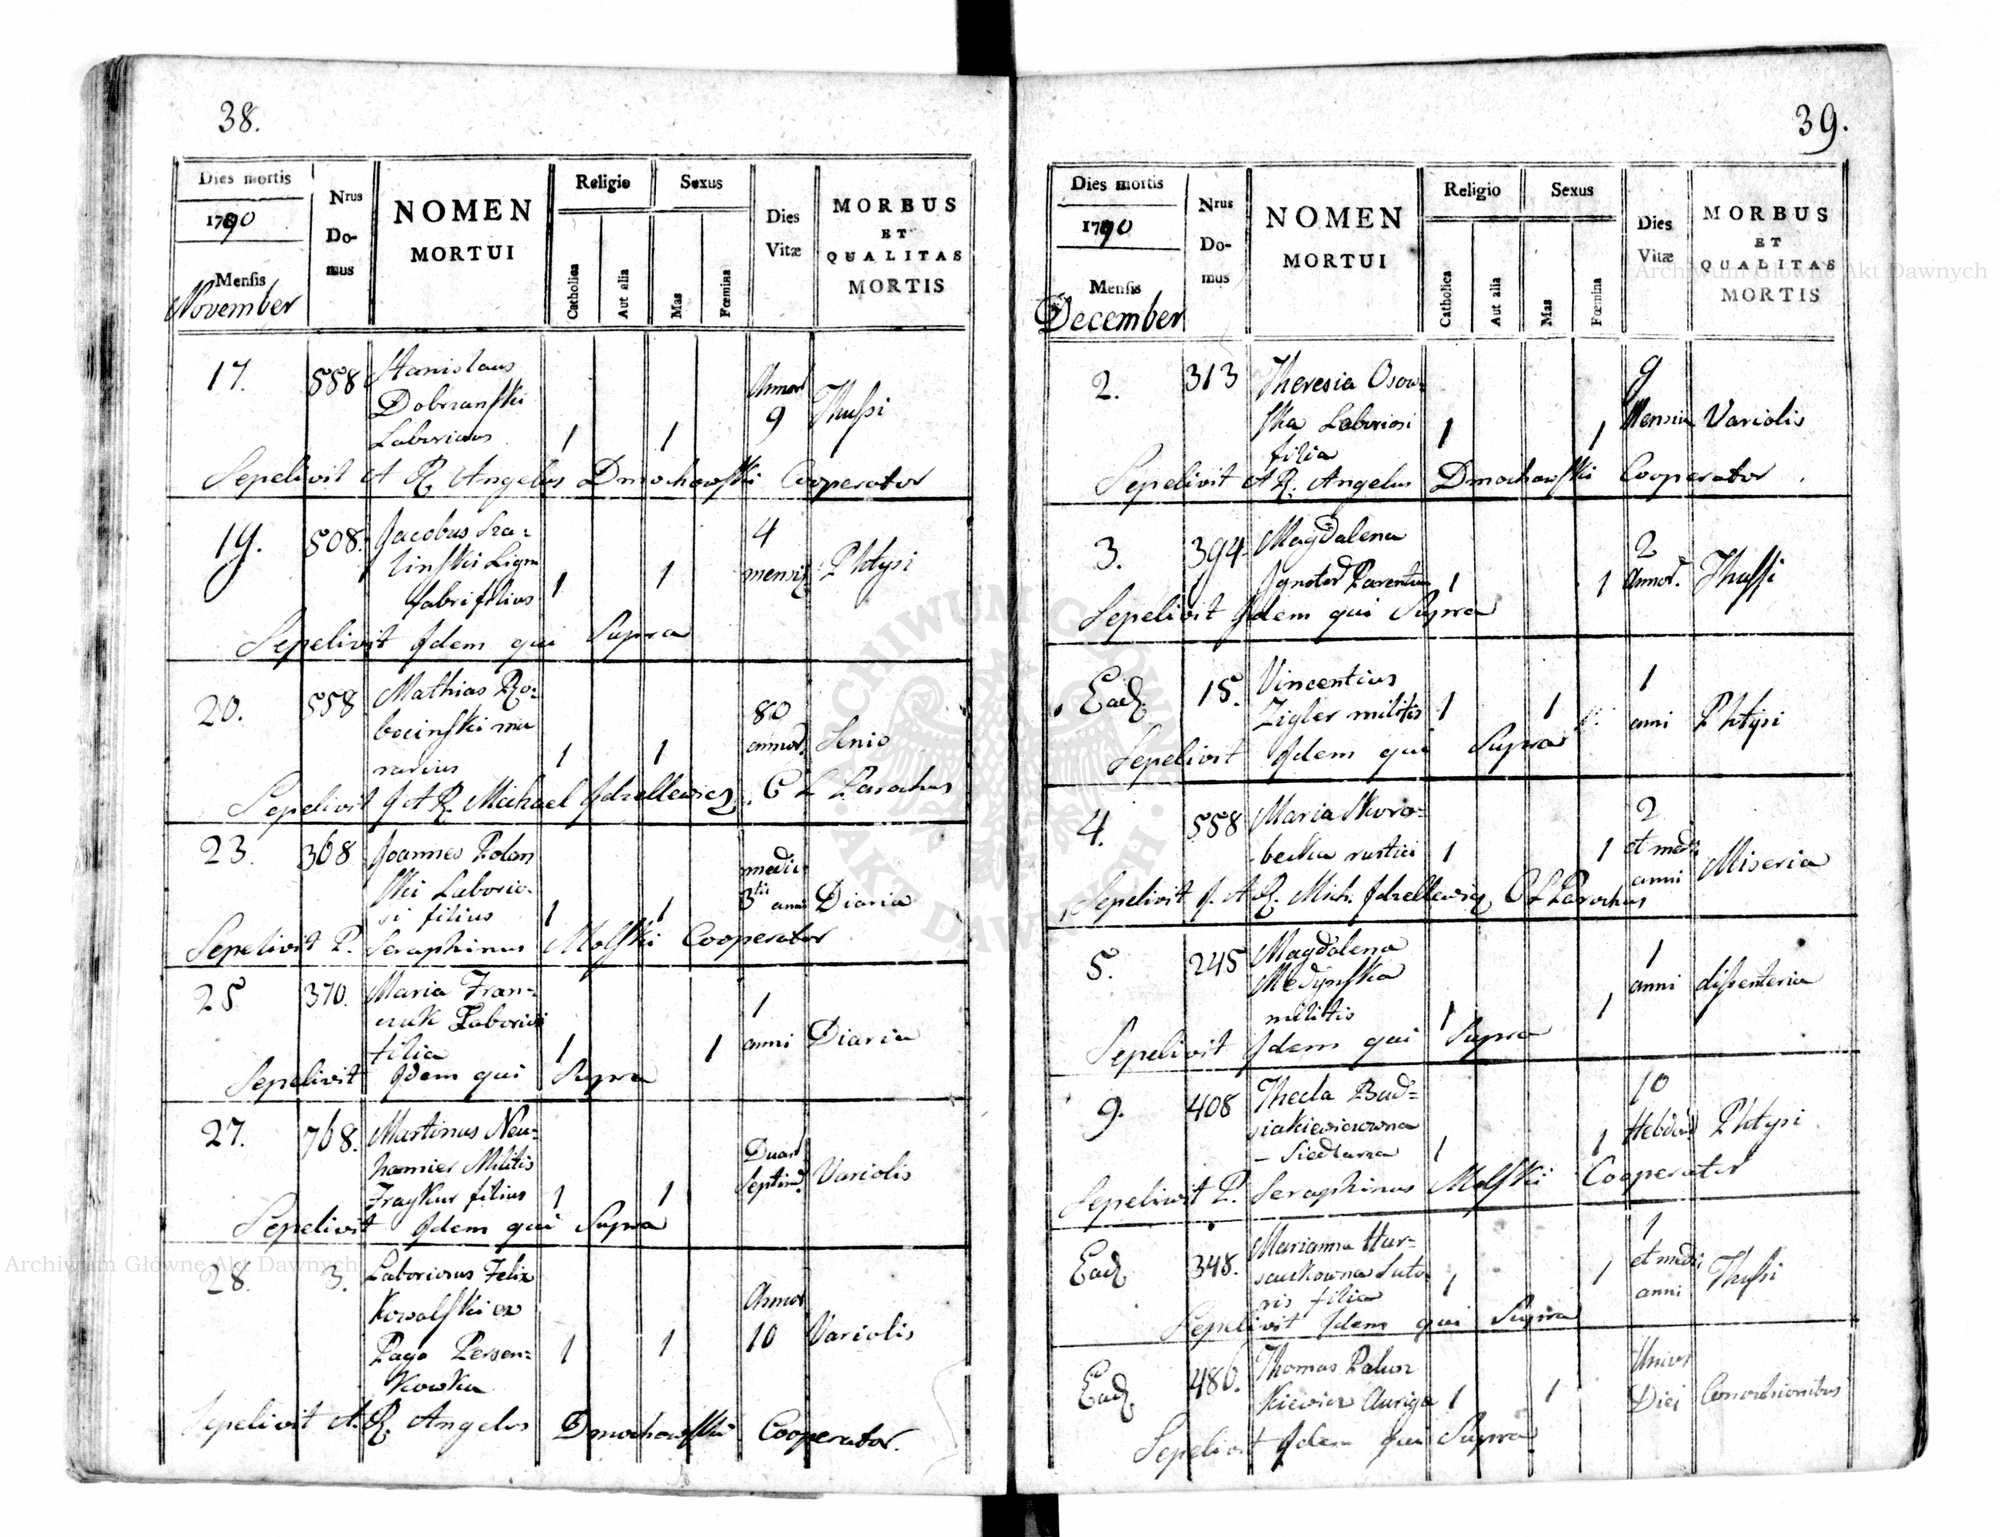 38.
Dies mortis
1790
Mensis
November
Nrus
Do-
mus
NOMEN
MORTUI
Religio
Catholica
Aut alia
Sexus
Mas
Fœmina
Dies
Vitæ
MORBUS
ET
QUALITAS
MORTIS
17. 558 Stanislaus
Dobrzanski
Laboriosus 1 1 9 Thussi
Sepelivit A R Angelus Dmochowski Cooperator
19. 508. Jacobus
linski Lign
fabri filius 1 1 4 mensis Phtysi
Sepelivit Idem qui Supra
20. 558 Mathias Ro-
becinski mu
rarius 1 1 80 annor. Senio
Sepelivit J A R. Michael Idzellewicz C L Parochus
23. 368 Joannes Polan
ski Laborio-
si filius 1 1 medii 3tii anni Diaria
Sepelivit P. Seraphinus Molski Cooperator
25 370. Maria Fran-
czuk Laboriosi
filia 1 1 1 anni Diaria
Sepelivit Idem qui Supra
27. 768. Martinus Neu-
hamier Militis
Fraykur filius 1 1 Duar Septim. Variolis
Sepelivit Idem qui Supra
28. 3. Laboriosus Felix
Kowalski ex
Pago Persen-
kowka 1 1 Annor 10 Variolis
Sepelivit A. R. Angelus Dmochowski Cooperator.
39.
Dies mortis
1790
Mensis
December
Nrus
Do-
mus
NOMEN
MORTUI
Religio
Catholica
Aut alia
Sexus
Mas
Fœmina
Dies
Vitæ
MORBUS
ET
QUALITAS
MORTIS
2. 313 Theresia Osow-
ska Laboriosi
filia 1 1 9 Mensium Variolis
Sepelivit A R. Angelus Dmochowski Cooperator
3. 394 Magdalena
Ignotor Parentum 1 1 2 Annor. Thussi
Sepelivit Idem qui Supra
Ead. 15. Vincentius
Zigler militis 1 1 1 anni Phtysi
Sepelivit Idem qui Supra
4. 558 Maria Skoro-
becka rustici 1 1 2 et medii anni Miseria
Sepelivit J. A R. Mich. Idzellewicz C L Parochus
5. 245 Magdalena
Medynska
militis 1 1 1 anni dissenteria
Sepelivit Idem qui Supra
9. 408 Thecla Bad-
siakiewiczowna
1 1 10 Hebdom Phtysi
Sepelivit P. Seraphinus Molski Cooperator
Ead. 348. Marianna Har-
Suto-
ris filia 1 1 1 et medii anni Thussi
Sepelivit Idem qui Supra
Ead. 486. Thomas
kiewicz Auriga 1 1 Unius Diei Convulsionibus
Sepelivit Idem qui Supra
Archiwum Główne Akt Dawnych
Archiwum Główne Akt Dawnych
ARCHIWUM GŁÓWNE
AKT DAWNYCH